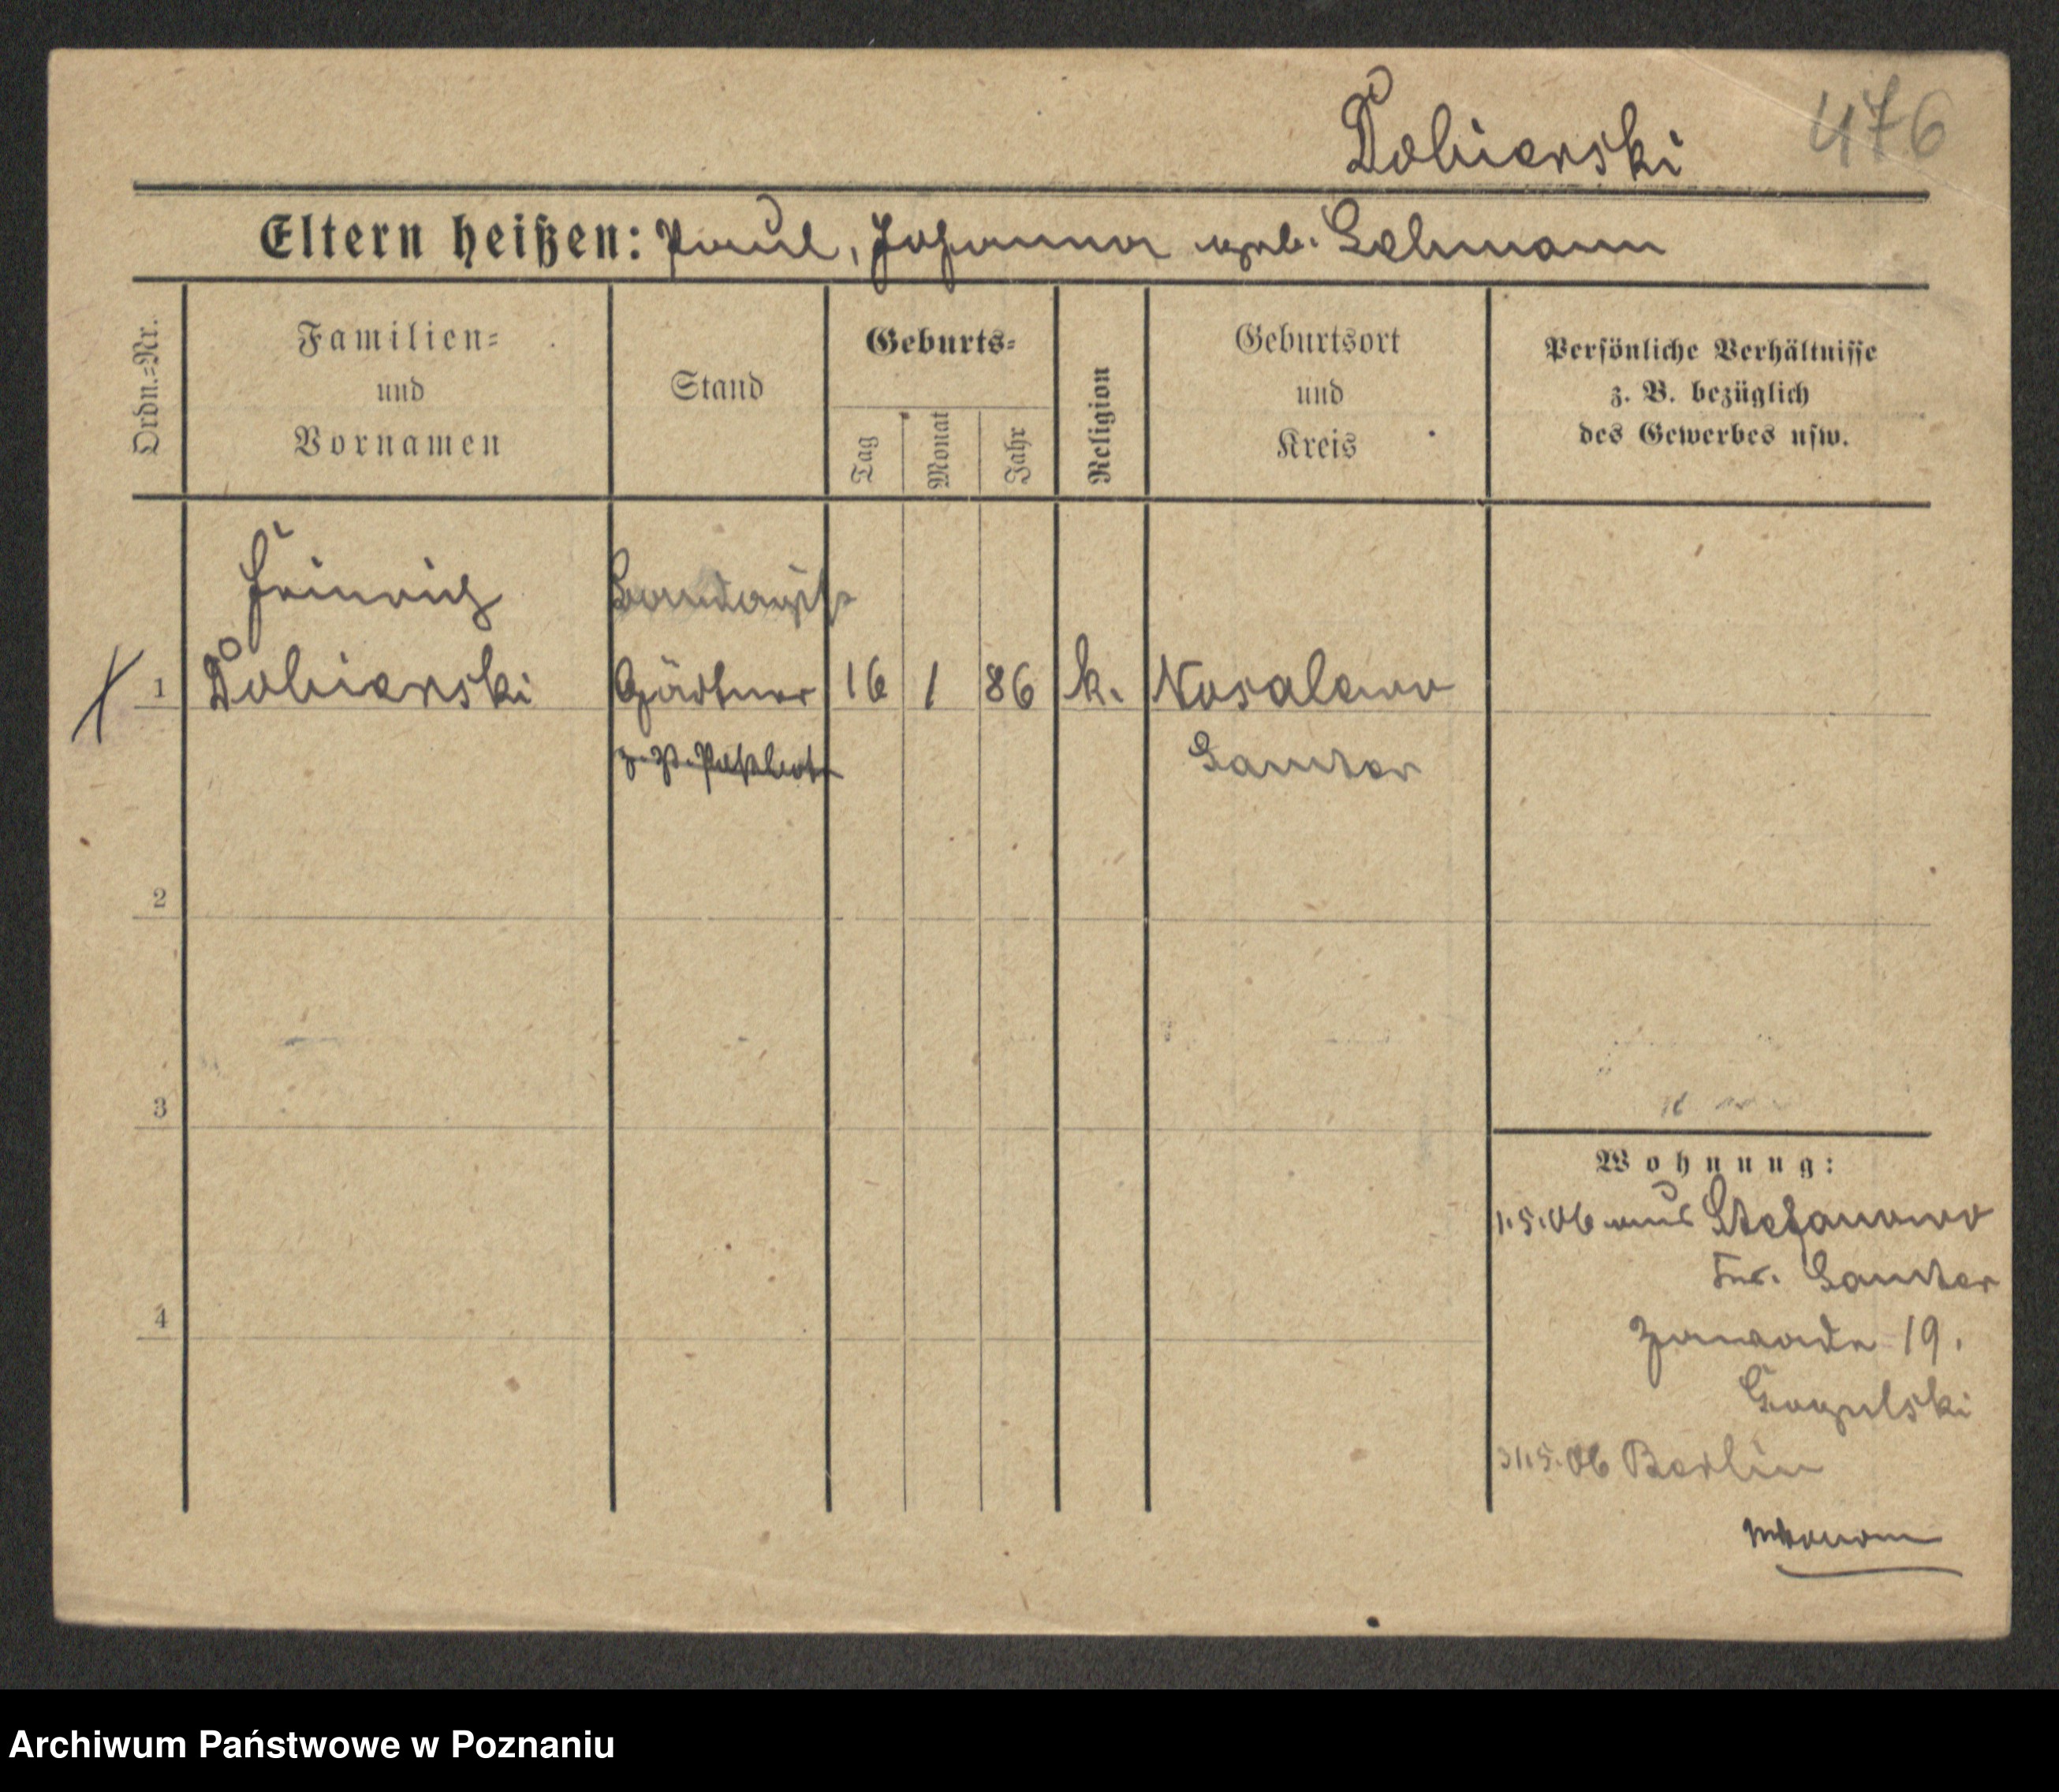 Dobierski 476
Eltern heißen: Paul, Johanna geb. Lehmann
Ordn.=Nr.
Familien=
und
Vornamen
Stand
Geburts=
Tag
Monat
Jahr
Religion
Geburtsort
und
Kreis
Persönliche Verhältnisse
z. B. bezüglich
des Gewerbes usw.
Heinrich
1 Dobierski Gärtner 16 1 86 k. Nosalewo
Samter
2
3
4
Wohnung:
1.5.06 aus Stefanowo
Krs. Samter
Zawade 19.
Gogulski
31.5.06 Berlin
Archiwum Państwowe w Poznaniu